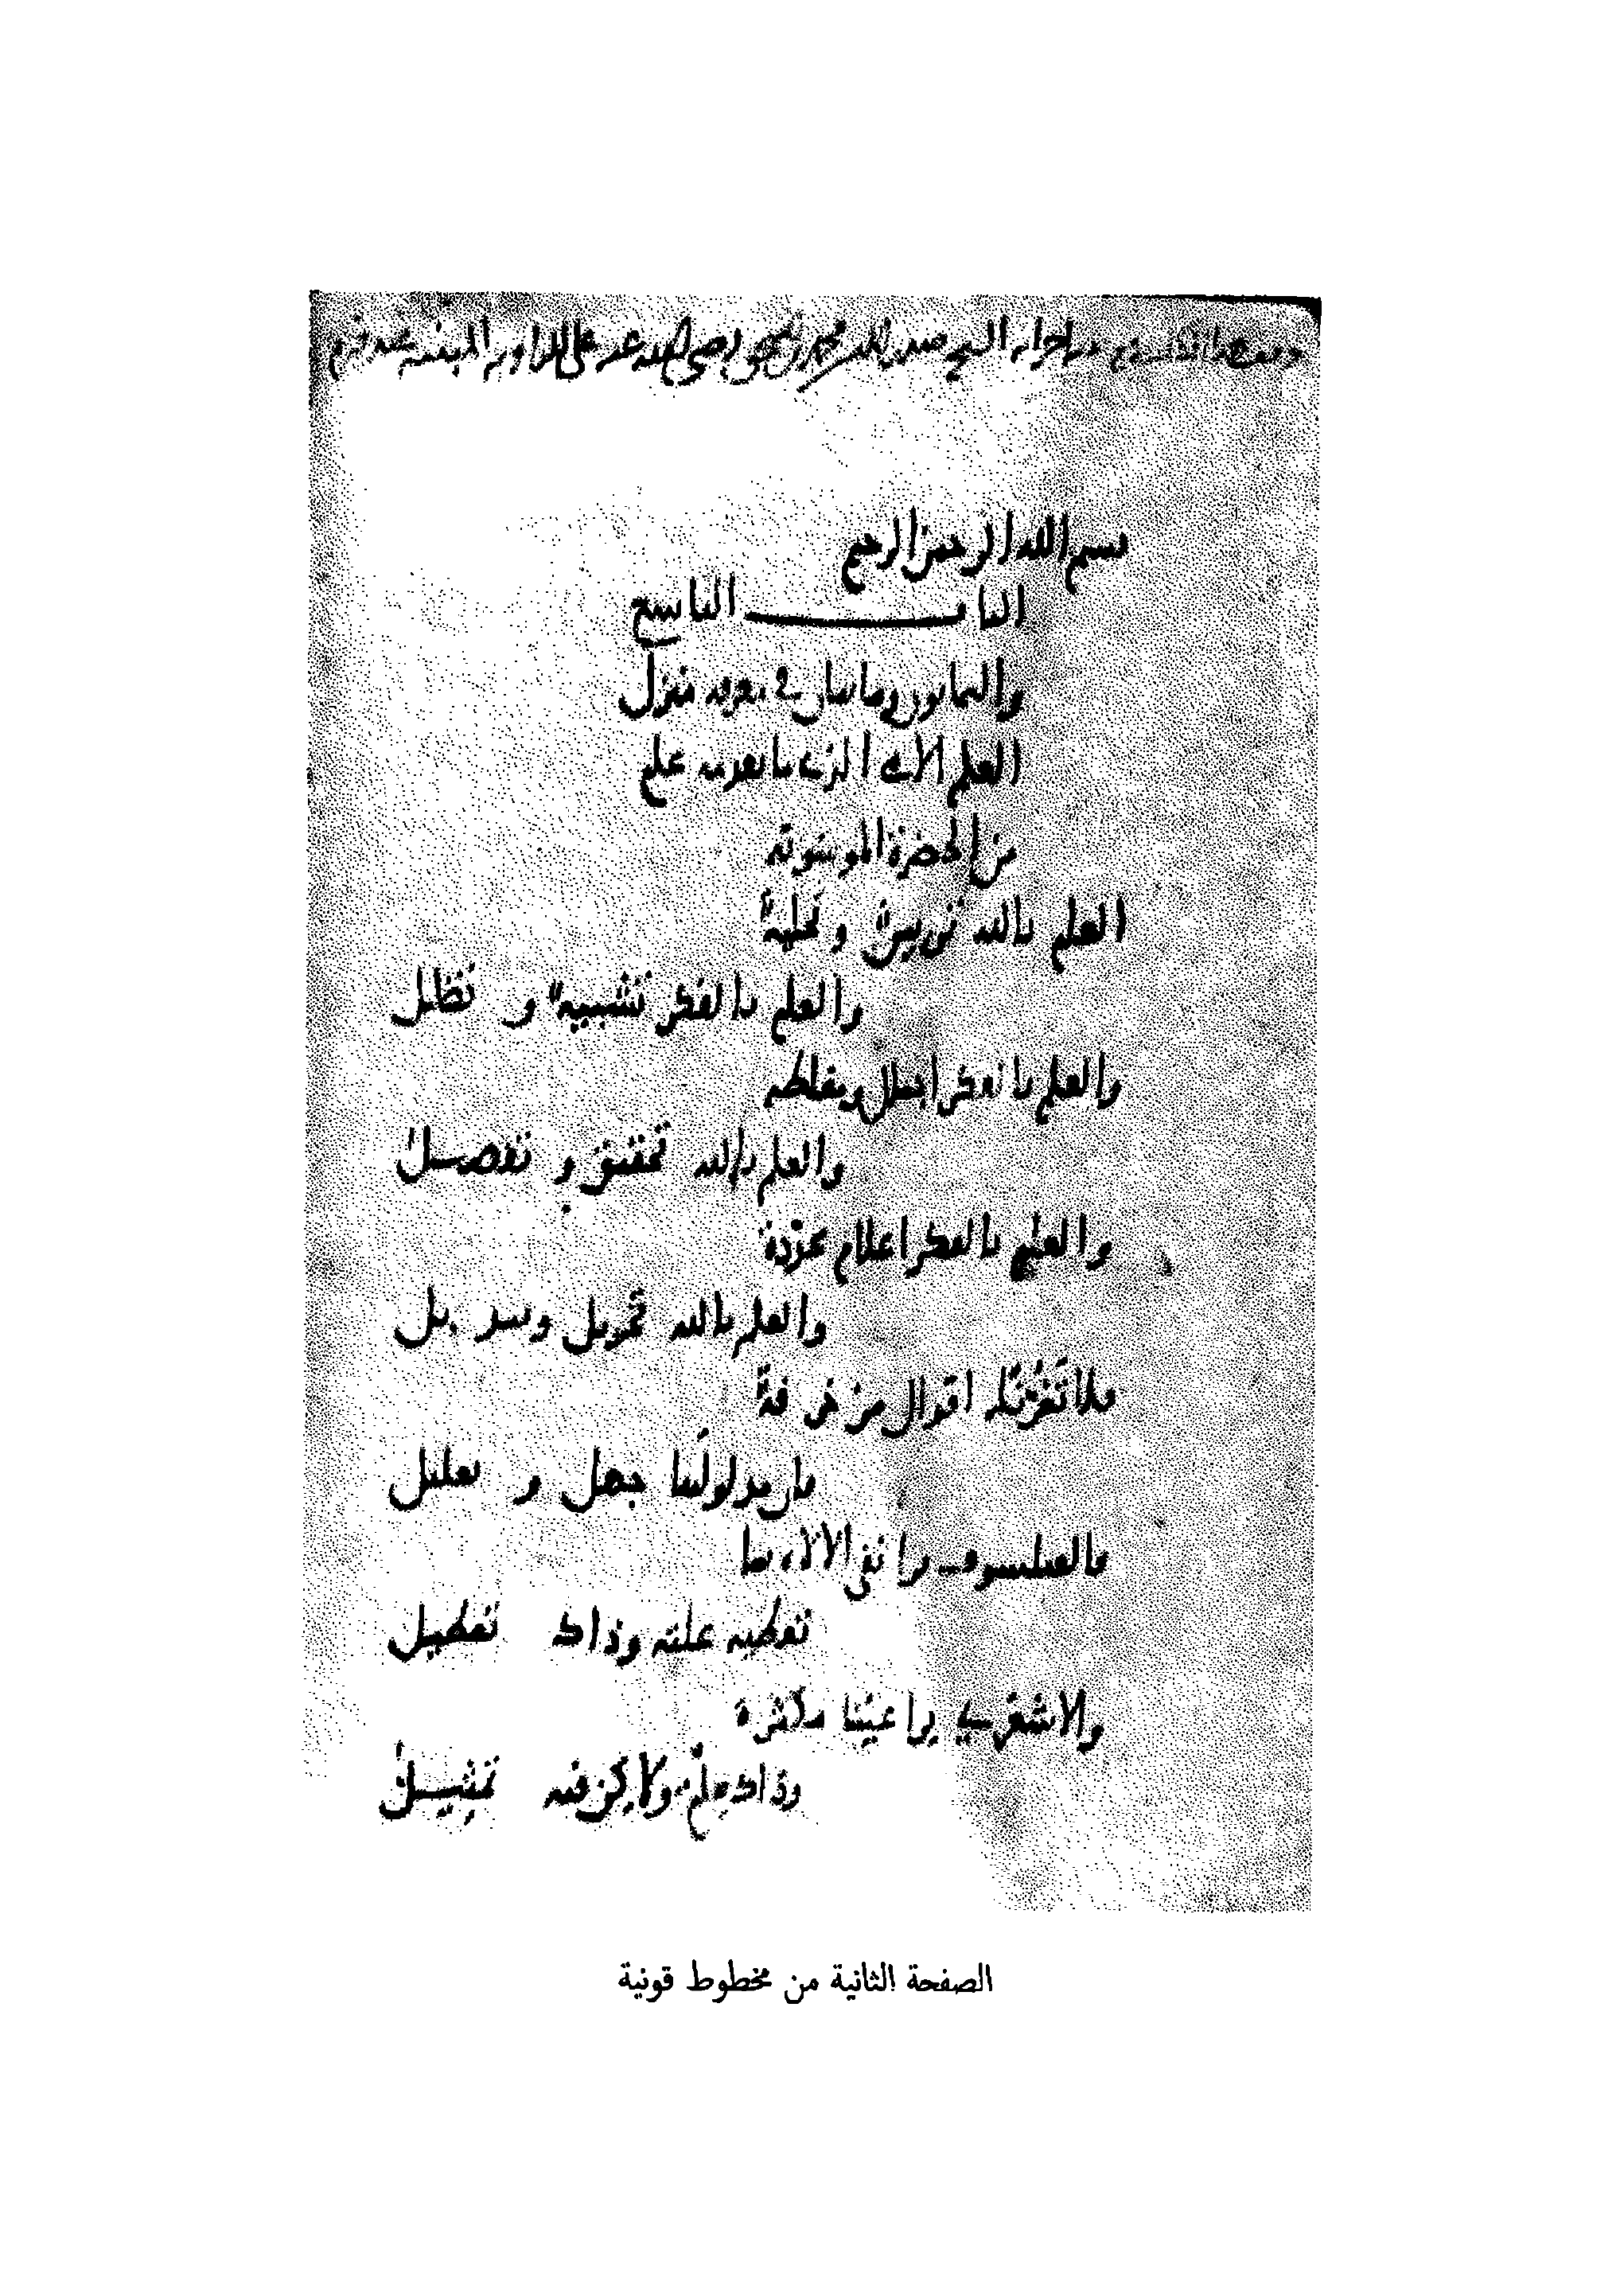 صدر الدين محمد رضي الله عنه على
بسم الله الرحمن الرحيم
الباب التاسع
والثمانون ومايتان في معرفة منزل
العلم الامي الذي ما تقدمه علم
من الحضرة الموسوية
العلم بالله تزيين وتحلية
والعلم بالفكر تشبيه وتضليل
والعلم بالفكر اجمال ومغلطة
والعلم بالله تحقيق وتفصيل
والعلم بالفكر اعلام مجردة
والعلم بالله تحويل وتبديل
فلا تغرنك اقوال مزخرفة
فان مدلولها جهل وتعليل
فالفيلسوف يرا نفي الاله بما
تعطيه علته وذاك تعطيل
والاشعري يرا عينا مكثرة
وذاك علم ولاكن فيه تمثيل
الصفحة الثانية من مخطوط قونية